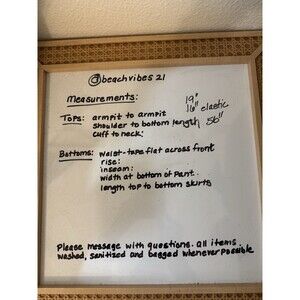 @beachvibes21
Measurements:
Tops: armpit to armpit 19"
shoulder to bottom length 56"
cuff to neck: 16" elastic
Bottoms: waist-tape flat across front
rise:
inseam:
width at bottom of pant.
length top to bottom skirts
Please message with questions. all items
washed, sanitized and bagged whenever possible